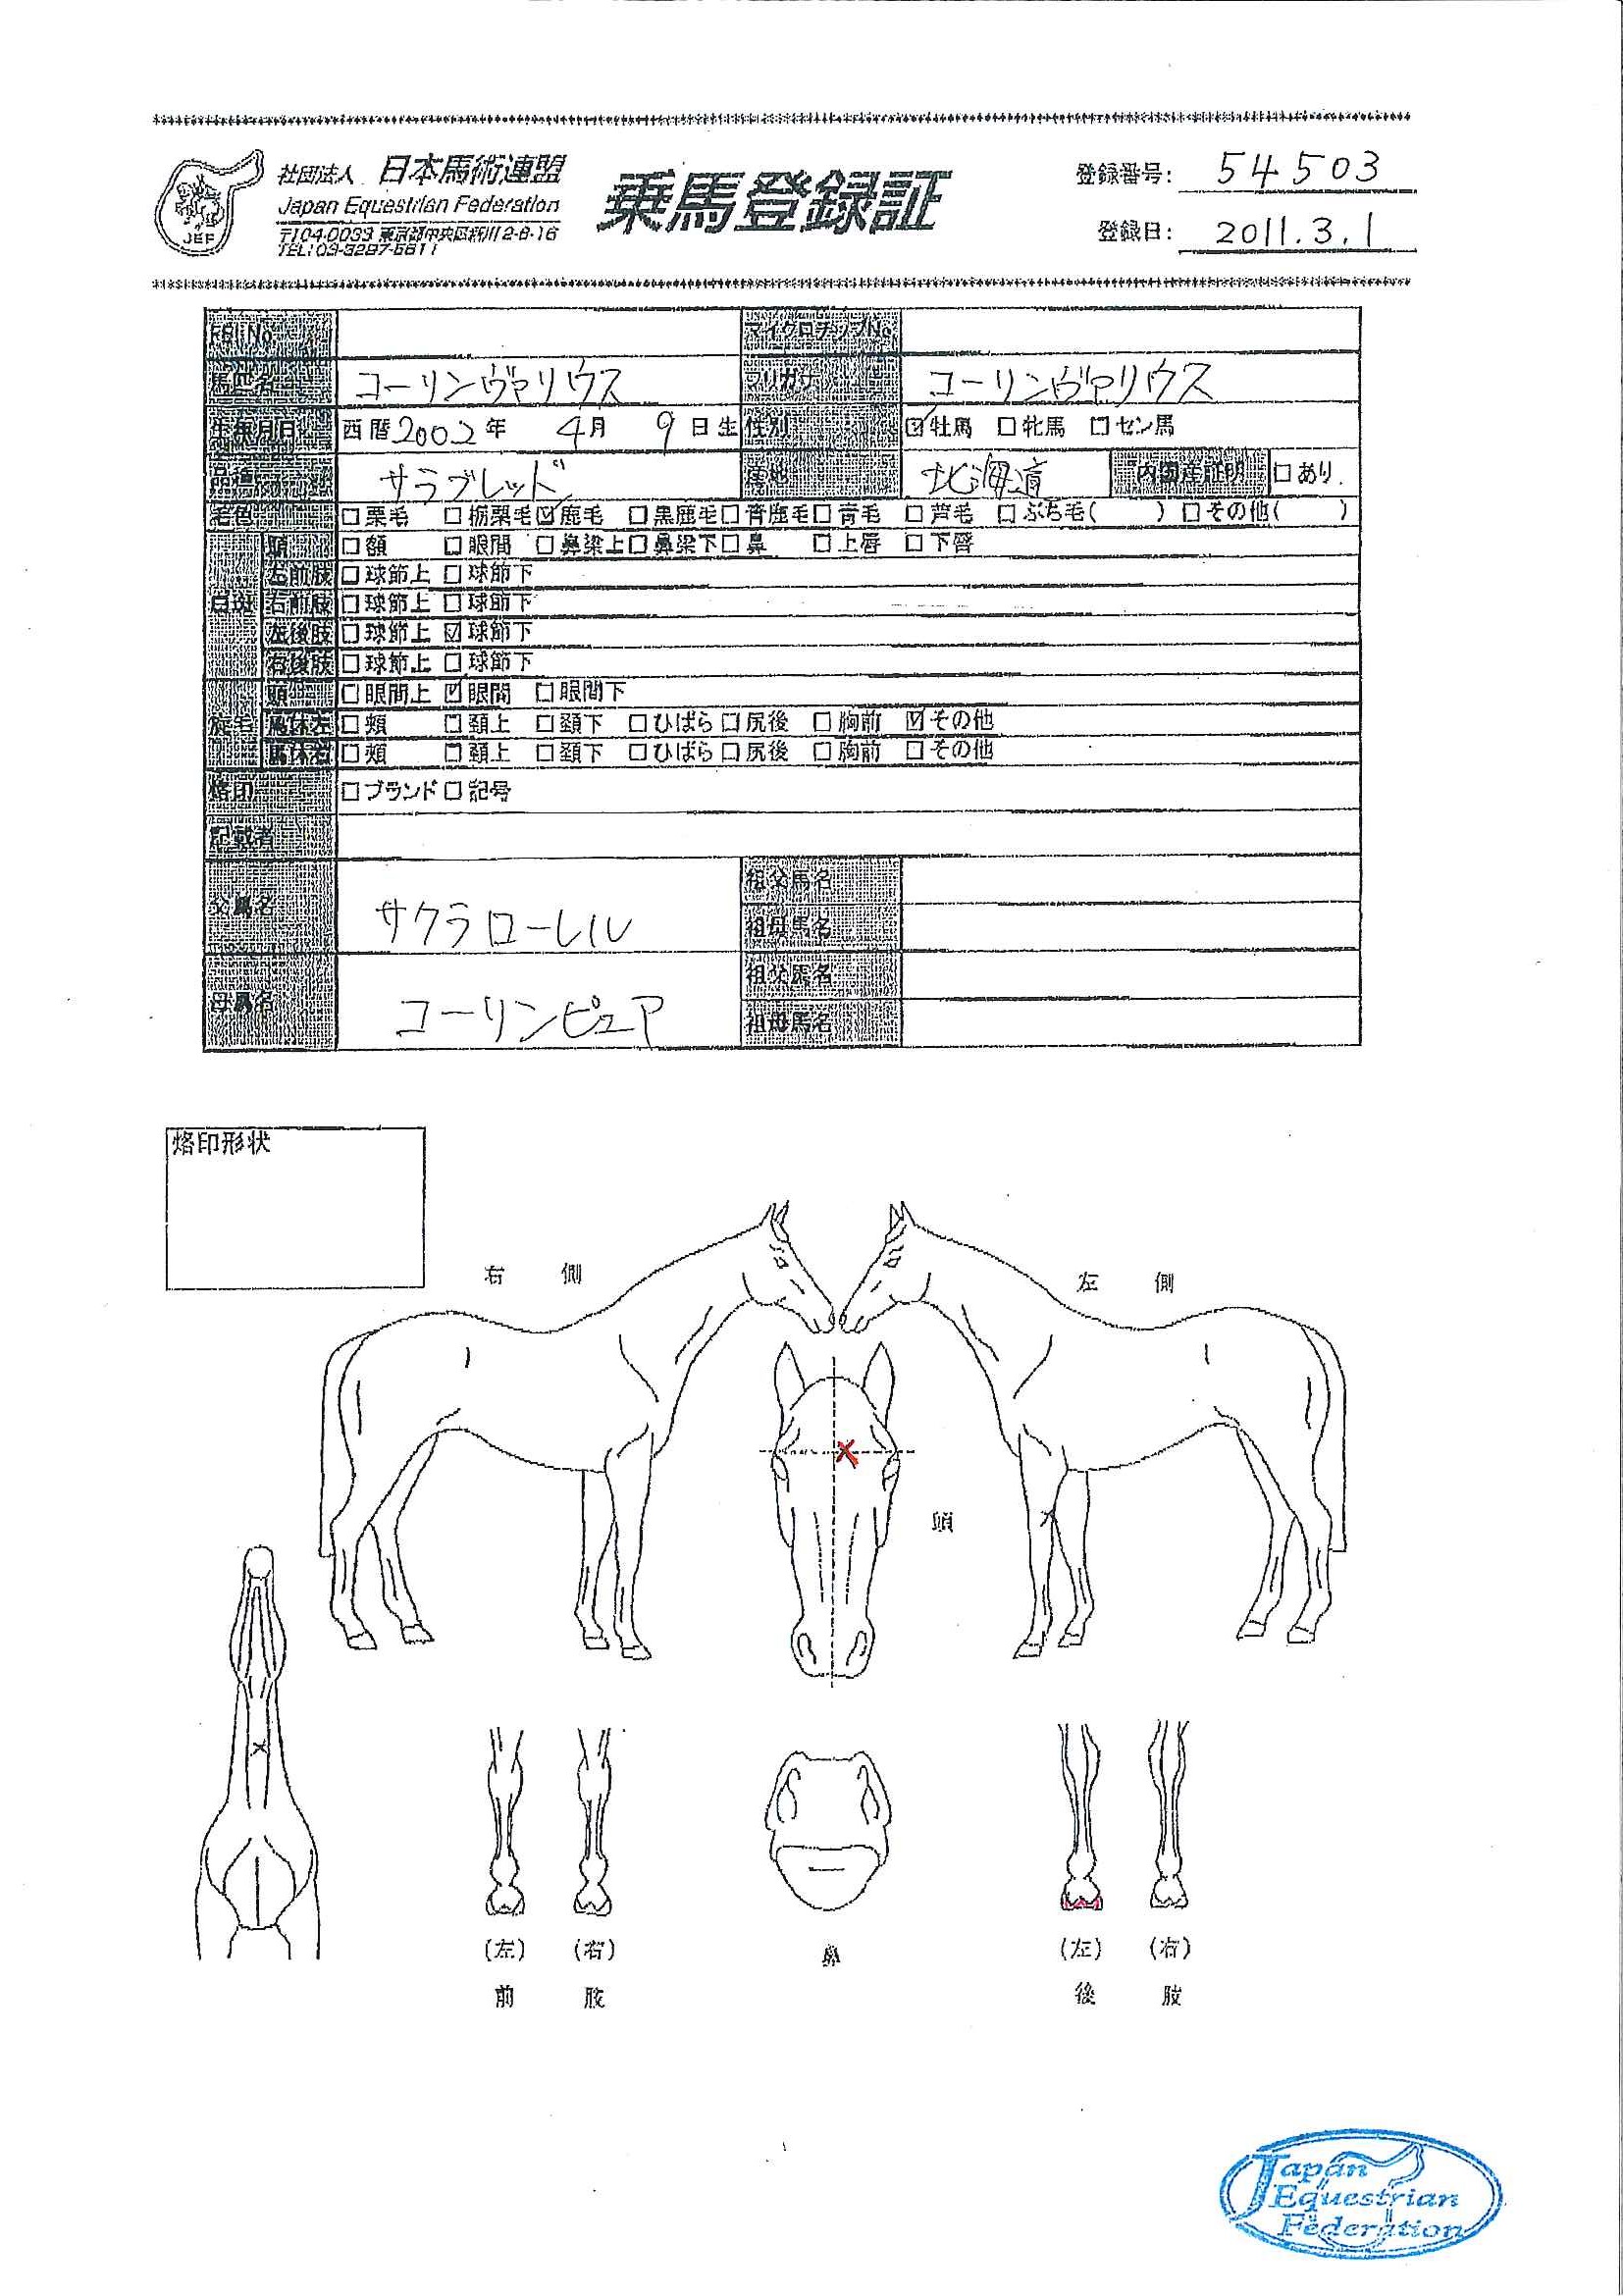 社団法人 日本馬術連盟
Japan Equestrian Federation
〒104-0033 東京都中央区新川2-6-16
TEL:03-3297-5611
JEF
乗馬登録証
登録番号: 54503
登録日: 2011.3.1
FEI No マイクロチップNo
馬匹名 コーリンヴァリウス フリガナ コーリンヴァリウス
生年月日 西暦2002年 4月 9日生 性別 ☑牡馬 □牝馬 □セン馬
品種 サラブレッド 産地 北海道 内国産証明 □あり
毛色 □栗毛 □栃栗毛 ☑鹿毛 □黒鹿毛 □青鹿毛 □青毛 □芦毛 □ぶち毛( ) □その他( )
白斑 頭 □額 □眼間 □鼻梁上 □鼻梁下 □鼻 □上唇 □下唇
左前肢 □球節上 □球節下
右前肢 □球節上 □球節下
左後肢 □球節上 ☑球節下
右後肢 □球節上 □球節下
旋毛 頭 □眼間上 ☑眼間 □眼間下
馬体左 □頬 □頚上 □頚下 □ひばら □尻後 □胸前 ☑その他
馬体右 □頬 □頚上 □頚下 □ひばら □尻後 □胸前 □その他
烙印 □ブランド □記号
記載者
父馬名 サクラローレル 祖父馬名
祖母馬名
母馬名 コーリンピュア 祖父馬名
祖母馬名
烙印形状
右 側
左 側
頭
(左) (右)
前 肢
鼻
(左) (右)
後 肢
Japan
Equestrian
Federation